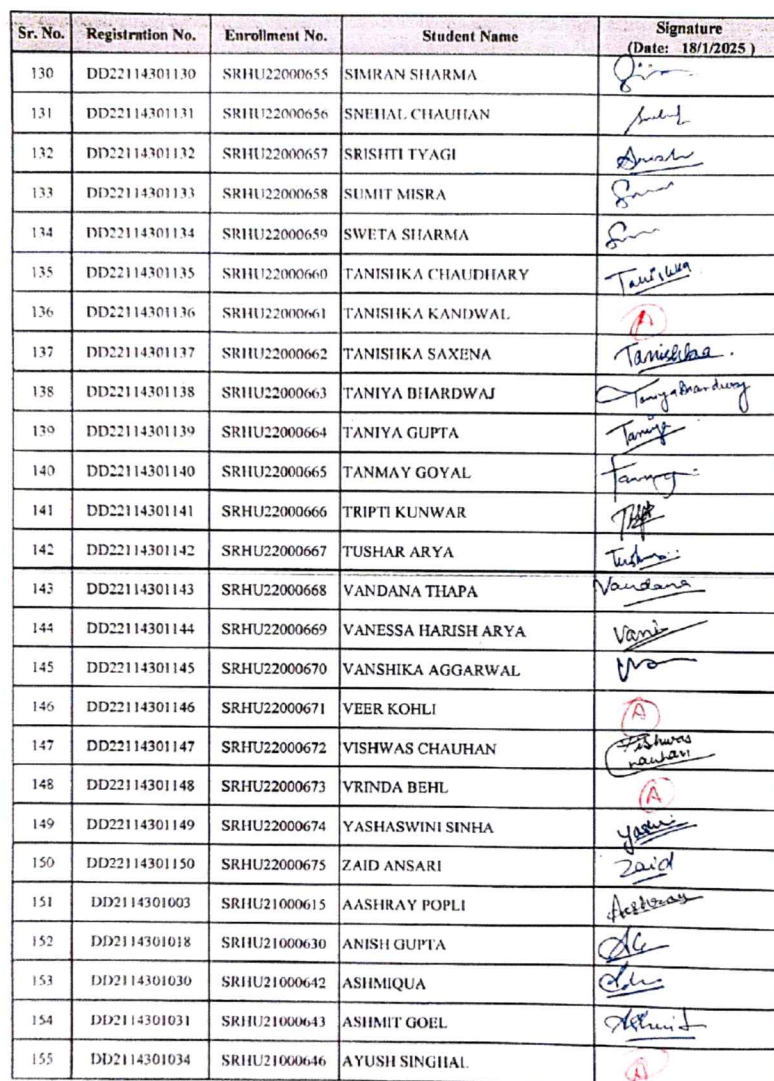 Sr. No. Registration No. Enrollment No. Student Name Signature (Date: 18/1/2025 )
130 DD22114301130 SRHU22000655 SIMRAN SHARMA
131 DD22114301131 SRHU22000656 SNEHAL CHAUHAN
132 DD22114301132 SRHU22000657 SRISHTI TYAGI
133 DD22114301133 SRHU22000658 SUMIT MISRA
134 DD22114301134 SRHU22000659 SWETA SHARMA
135 DD22114301135 SRHU22000660 TANISHKA CHAUDHARY Tanishka
136 DD22114301136 SRHU22000661 TANISHKA KANDWAL A
137 DD22114301137 SRHU22000662 TANISHKA SAXENA Tanishkaa .
138 DD22114301138 SRHU22000663 TANIYA BHARDWAJ
139 DD22114301139 SRHU22000664 TANIYA GUPTA Taniya
140 DD22114301140 SRHU22000665 TANMAY GOYAL
141 DD22114301141 SRHU22000666 TRIPTI KUNWAR
142 DD22114301142 SRHU22000667 TUSHAR ARYA
143 DD22114301143 SRHU22000668 VANDANA THAPA Vandana
144 DD22114301144 SRHU22000669 VANESSA HARISH ARYA
145 DD22114301145 SRHU22000670 VANSHIKA AGGARWAL
146 DD22114301146 SRHU22000671 VEER KOHLI A
147 DD22114301147 SRHU22000672 VISHWAS CHAUHAN Vishwas
148 DD22114301148 SRHU22000673 VRINDA BEHL A
149 DD22114301149 SRHU22000674 YASHASWINI SINHA
150 DD22114301150 SRHU22000675 ZAID ANSARI Zaid
151 DD2114301003 SRHU21000615 AASHRAY POPLI
152 DD2114301018 SRHU21000630 ANISH GUPTA
153 DD2114301030 SRHU21000642 ASHMIQUA
154 DD2114301031 SRHU21000643 ASHMIT GOEL Ashmit
155 DD2114301034 SRHU21000646 AYUSH SINGHAL A